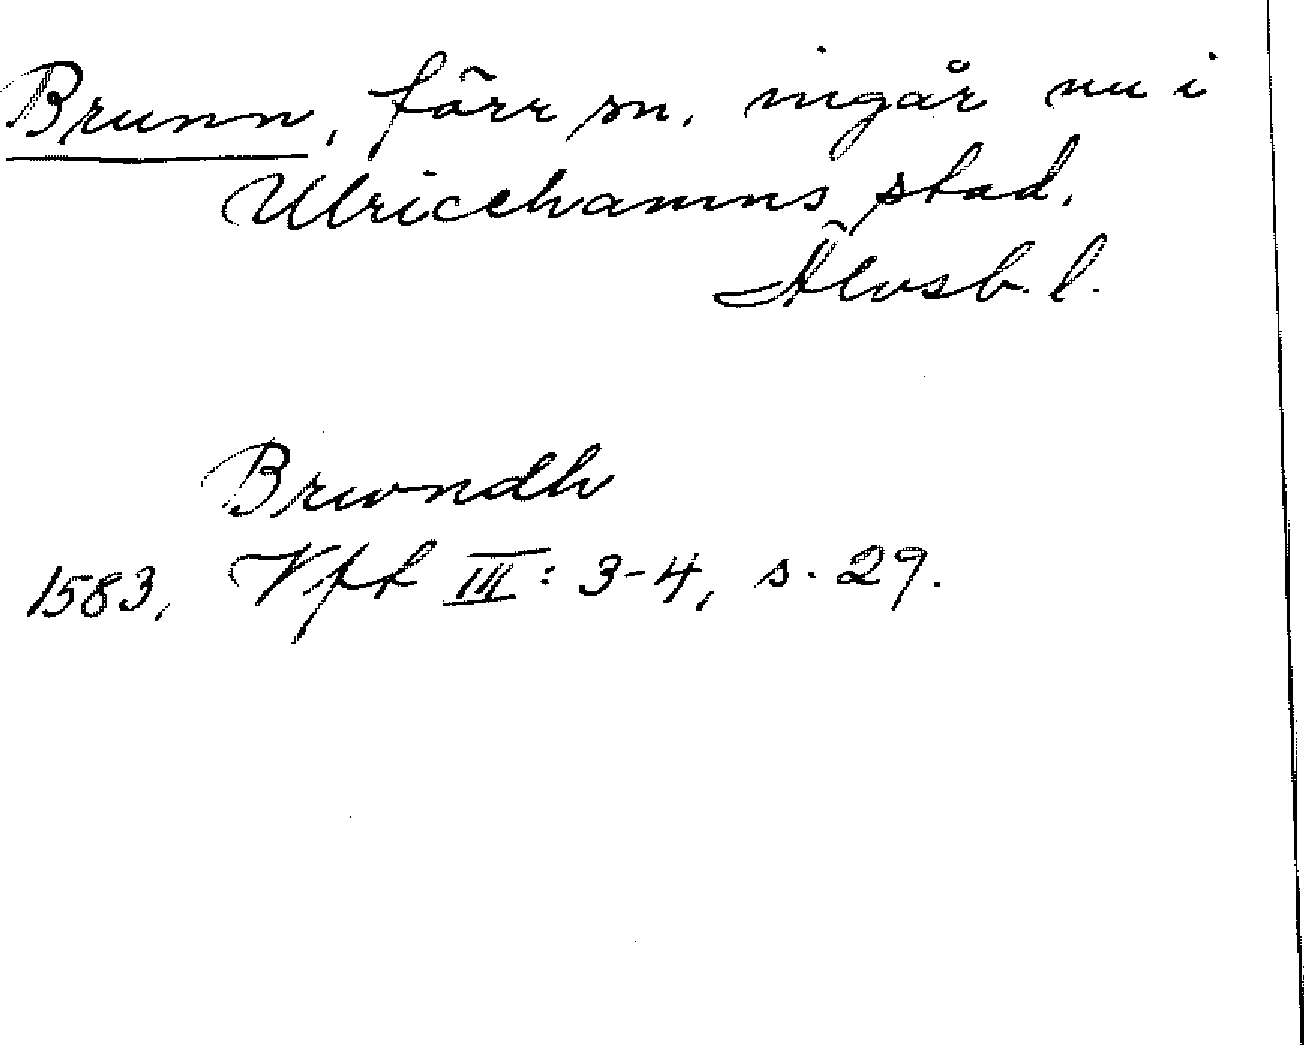 Brunn, förr sn, ingår nu i
Ulricehamns stad.
Älvsb. l.
Brwndh
1583, Vfk III: 3-4, s. 29.